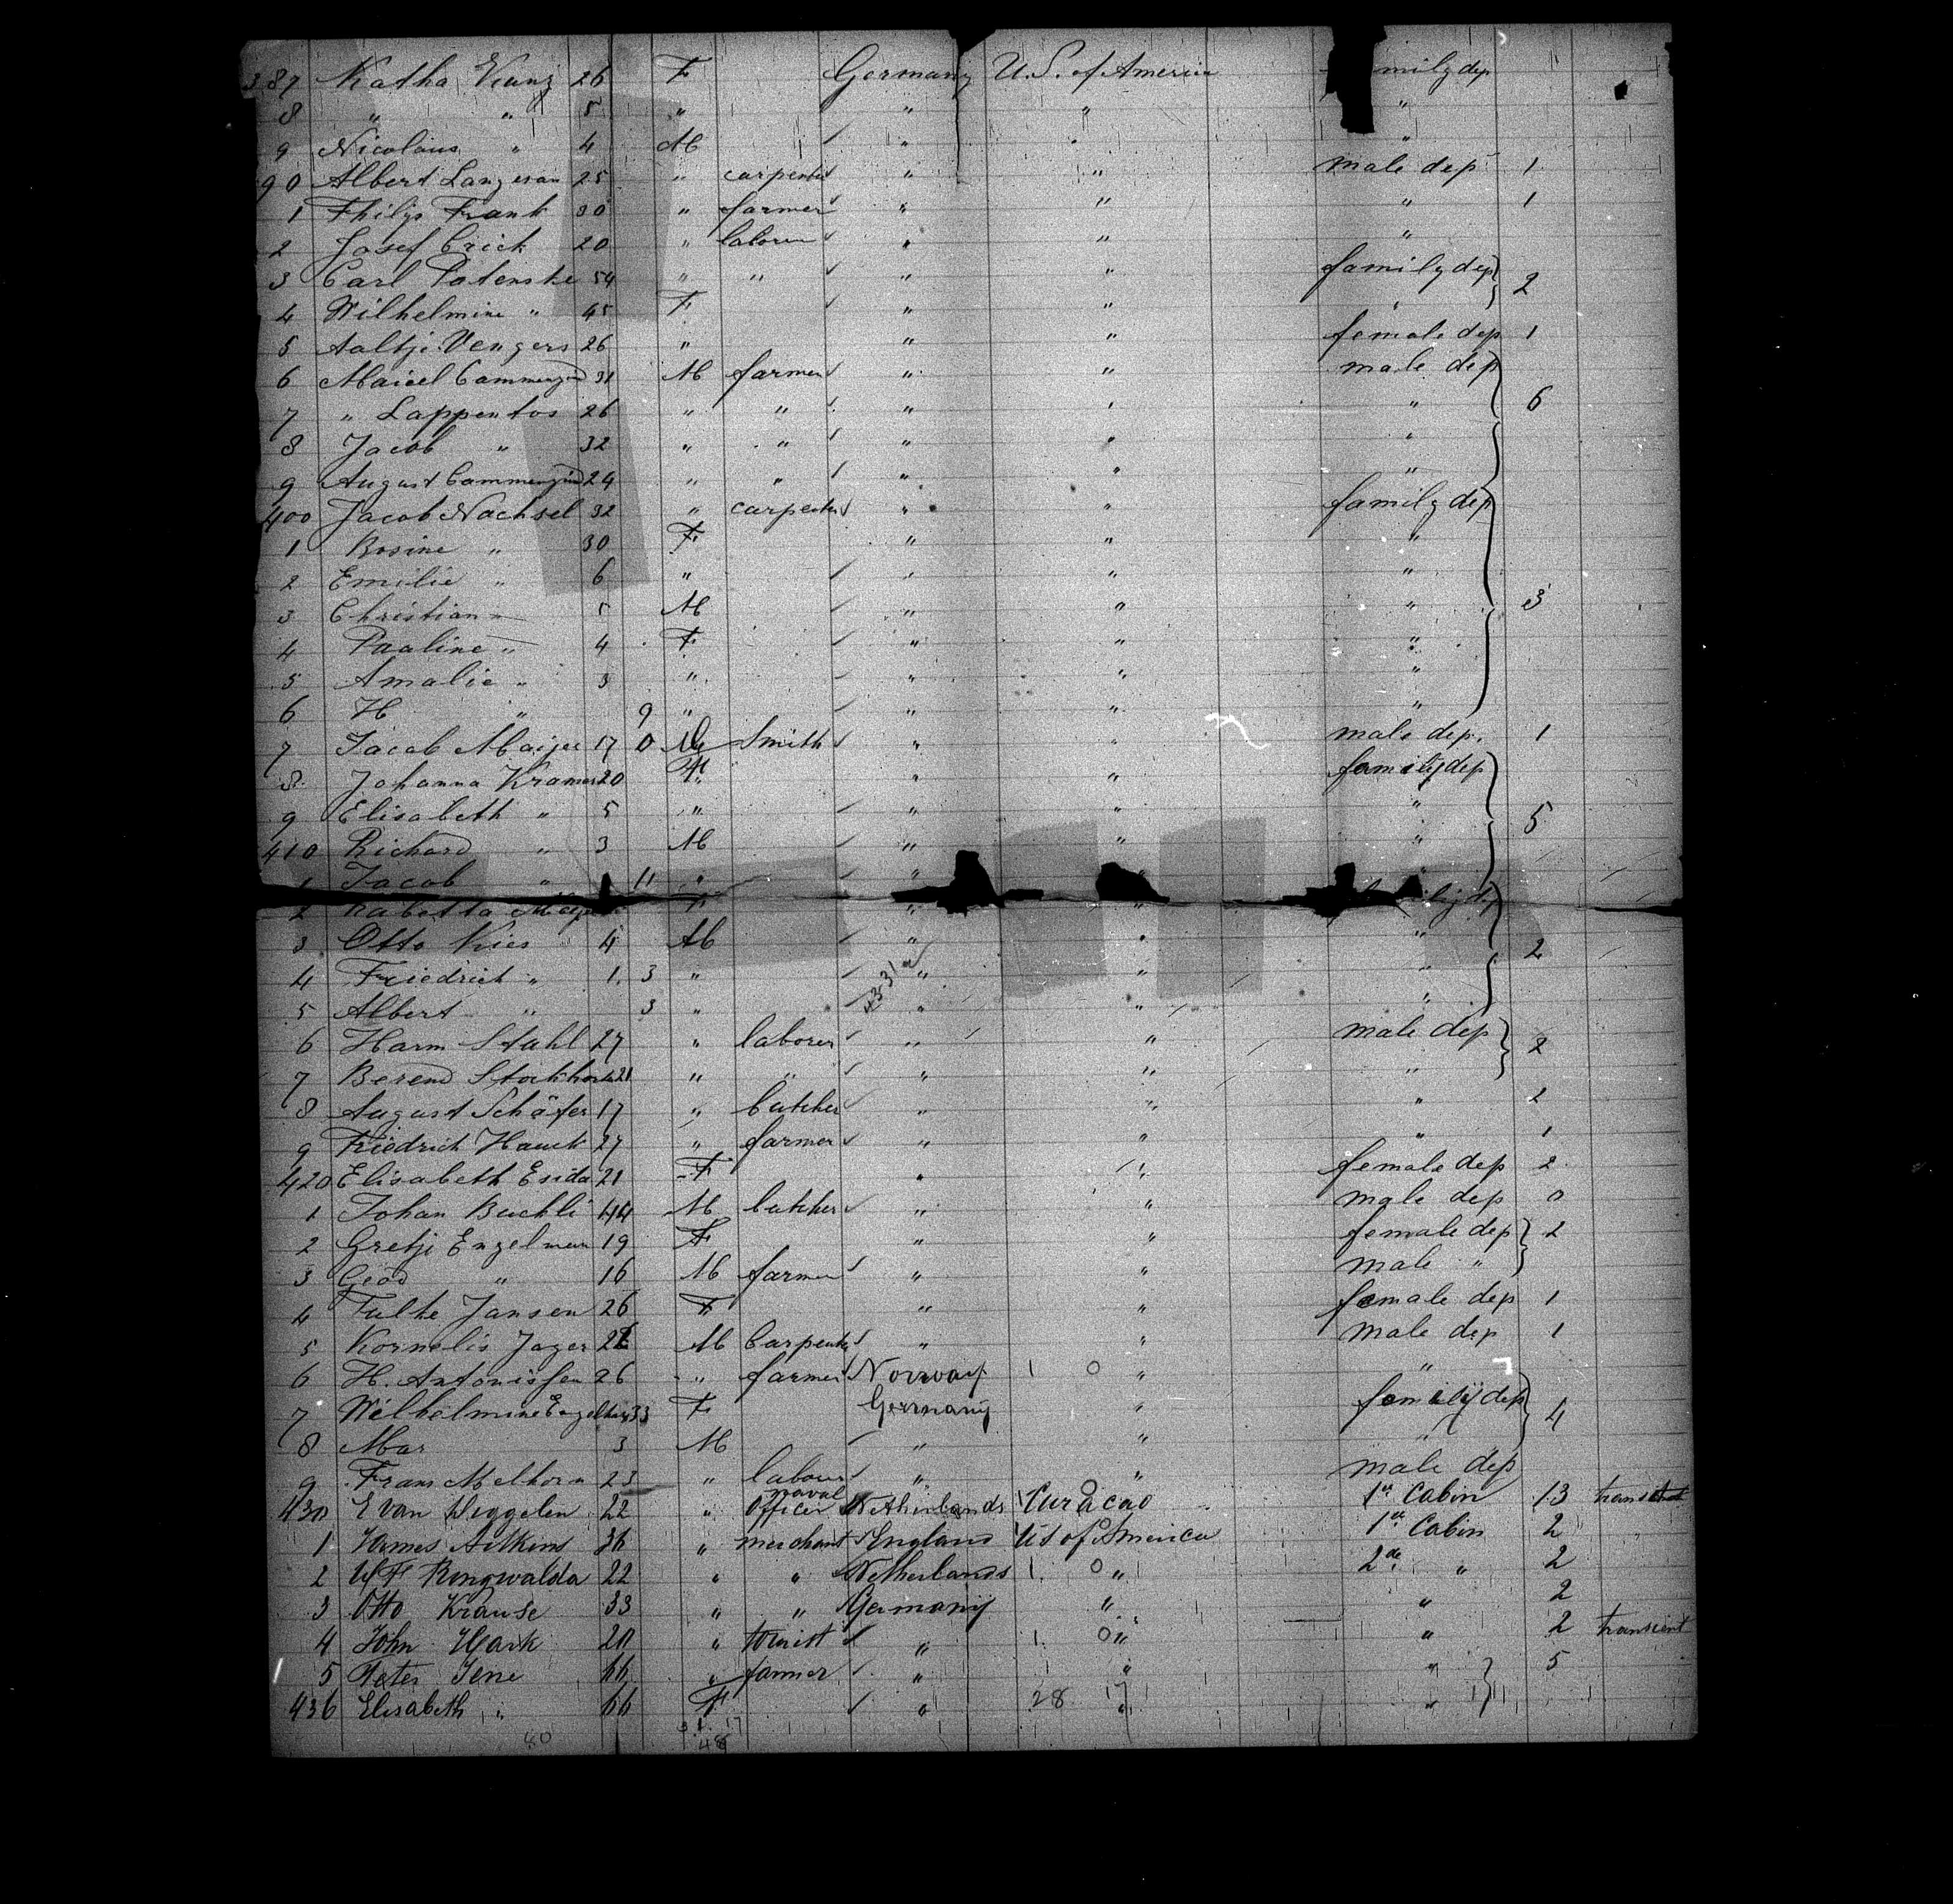 387 Katha Kunz 26 F Germany U.S. of America family dep
8 " " 5 " " " "
9 Nicolaus " 4 M " " "
90 Albert Langeran 25 " carpenter " " male dep 1
1 Philip Frank 30 " farmer " " " 1
2 Josef Crick 20 " laborer " " "
3 Carl Potenske 54 " " " " family dep 2
4 Wilhelmine " 45 F " " "
5 Aaltje Vengers 26 " " " female dep 1
6 Maicel Cammenzind 31 M farmer " " male dep 6
7 " Lappentos 26 " " " " "
8 Jacob " 32 " " " " "
9 August Cammenzind 24 " " " " "
400 Jacob Nachsel 32 " carpenter " " family dep
1 Rosine " 30 F " " "
2 Emilie " 6 " " " "
3 Christian " 5 M " " " 3
4 Pauline " 4 F " " "
5 Amalie " 3 " " " "
6 H " 9 " " " "
7 Jacob Maijer 17 0 M Smith " " male dep. 1
8 Johanna Kramer 20 F " " family dep
9 Elisabeth " 5 " " " " 5
410 Richard " 3 M " " "
1 Jacob " 11 " " "
2 Babetta F " "
3 Otto Kies 4 M " " " 2
4 Friedrich " 1. 3 " " " "
5 Albert " 3 " " " "
6 Harm Stahl 27 " laborer " " male dep 2
7 Berend Stockhorst 21 " " " " "
8 August Schäfer 17 " butcher " " " 2
9 Friedrich Hauck 27 " farmer " " " 1
420 Elisabeth Esida 21 F " " female dep 2
1 Johan Buchli 44 M butcher " " male dep 0
2 Gretje Engelman 19 F " " female dep 2
3 Gerd " 16 M farmer " " male "
4 Fulke Jansen 26 F " " female dep 1
5 Kornelis Jager 22 M Carpenter " " male dep 1
6 H. Antonissen 26 " farmer Norway 1 0 " "
7 Wilhelmine Engelhar 33 F Germany " familij dep 4
8 Max 3 M " " "
9 Frans Melhorn 23 " labour " " male dep
430 E van Diggelen 22 " naval Officer Netherlands Curacao 1st Cabin 13 transient
1 James Aitkins 36 " merchant England US of America 1st Cabin 2
2 WF Ringwalda 22 " " Netherlands 1. 0 " 2de " 2
3 Otto Krause 33 " " Germany " " 2
4 John Hark 20 " tourist " 1. 0 " " 2 transient
5 Peter Jene 66 " farmer " " " 5
436 Elisabeth " 66 F " 28 17 " "
80 31 17
48